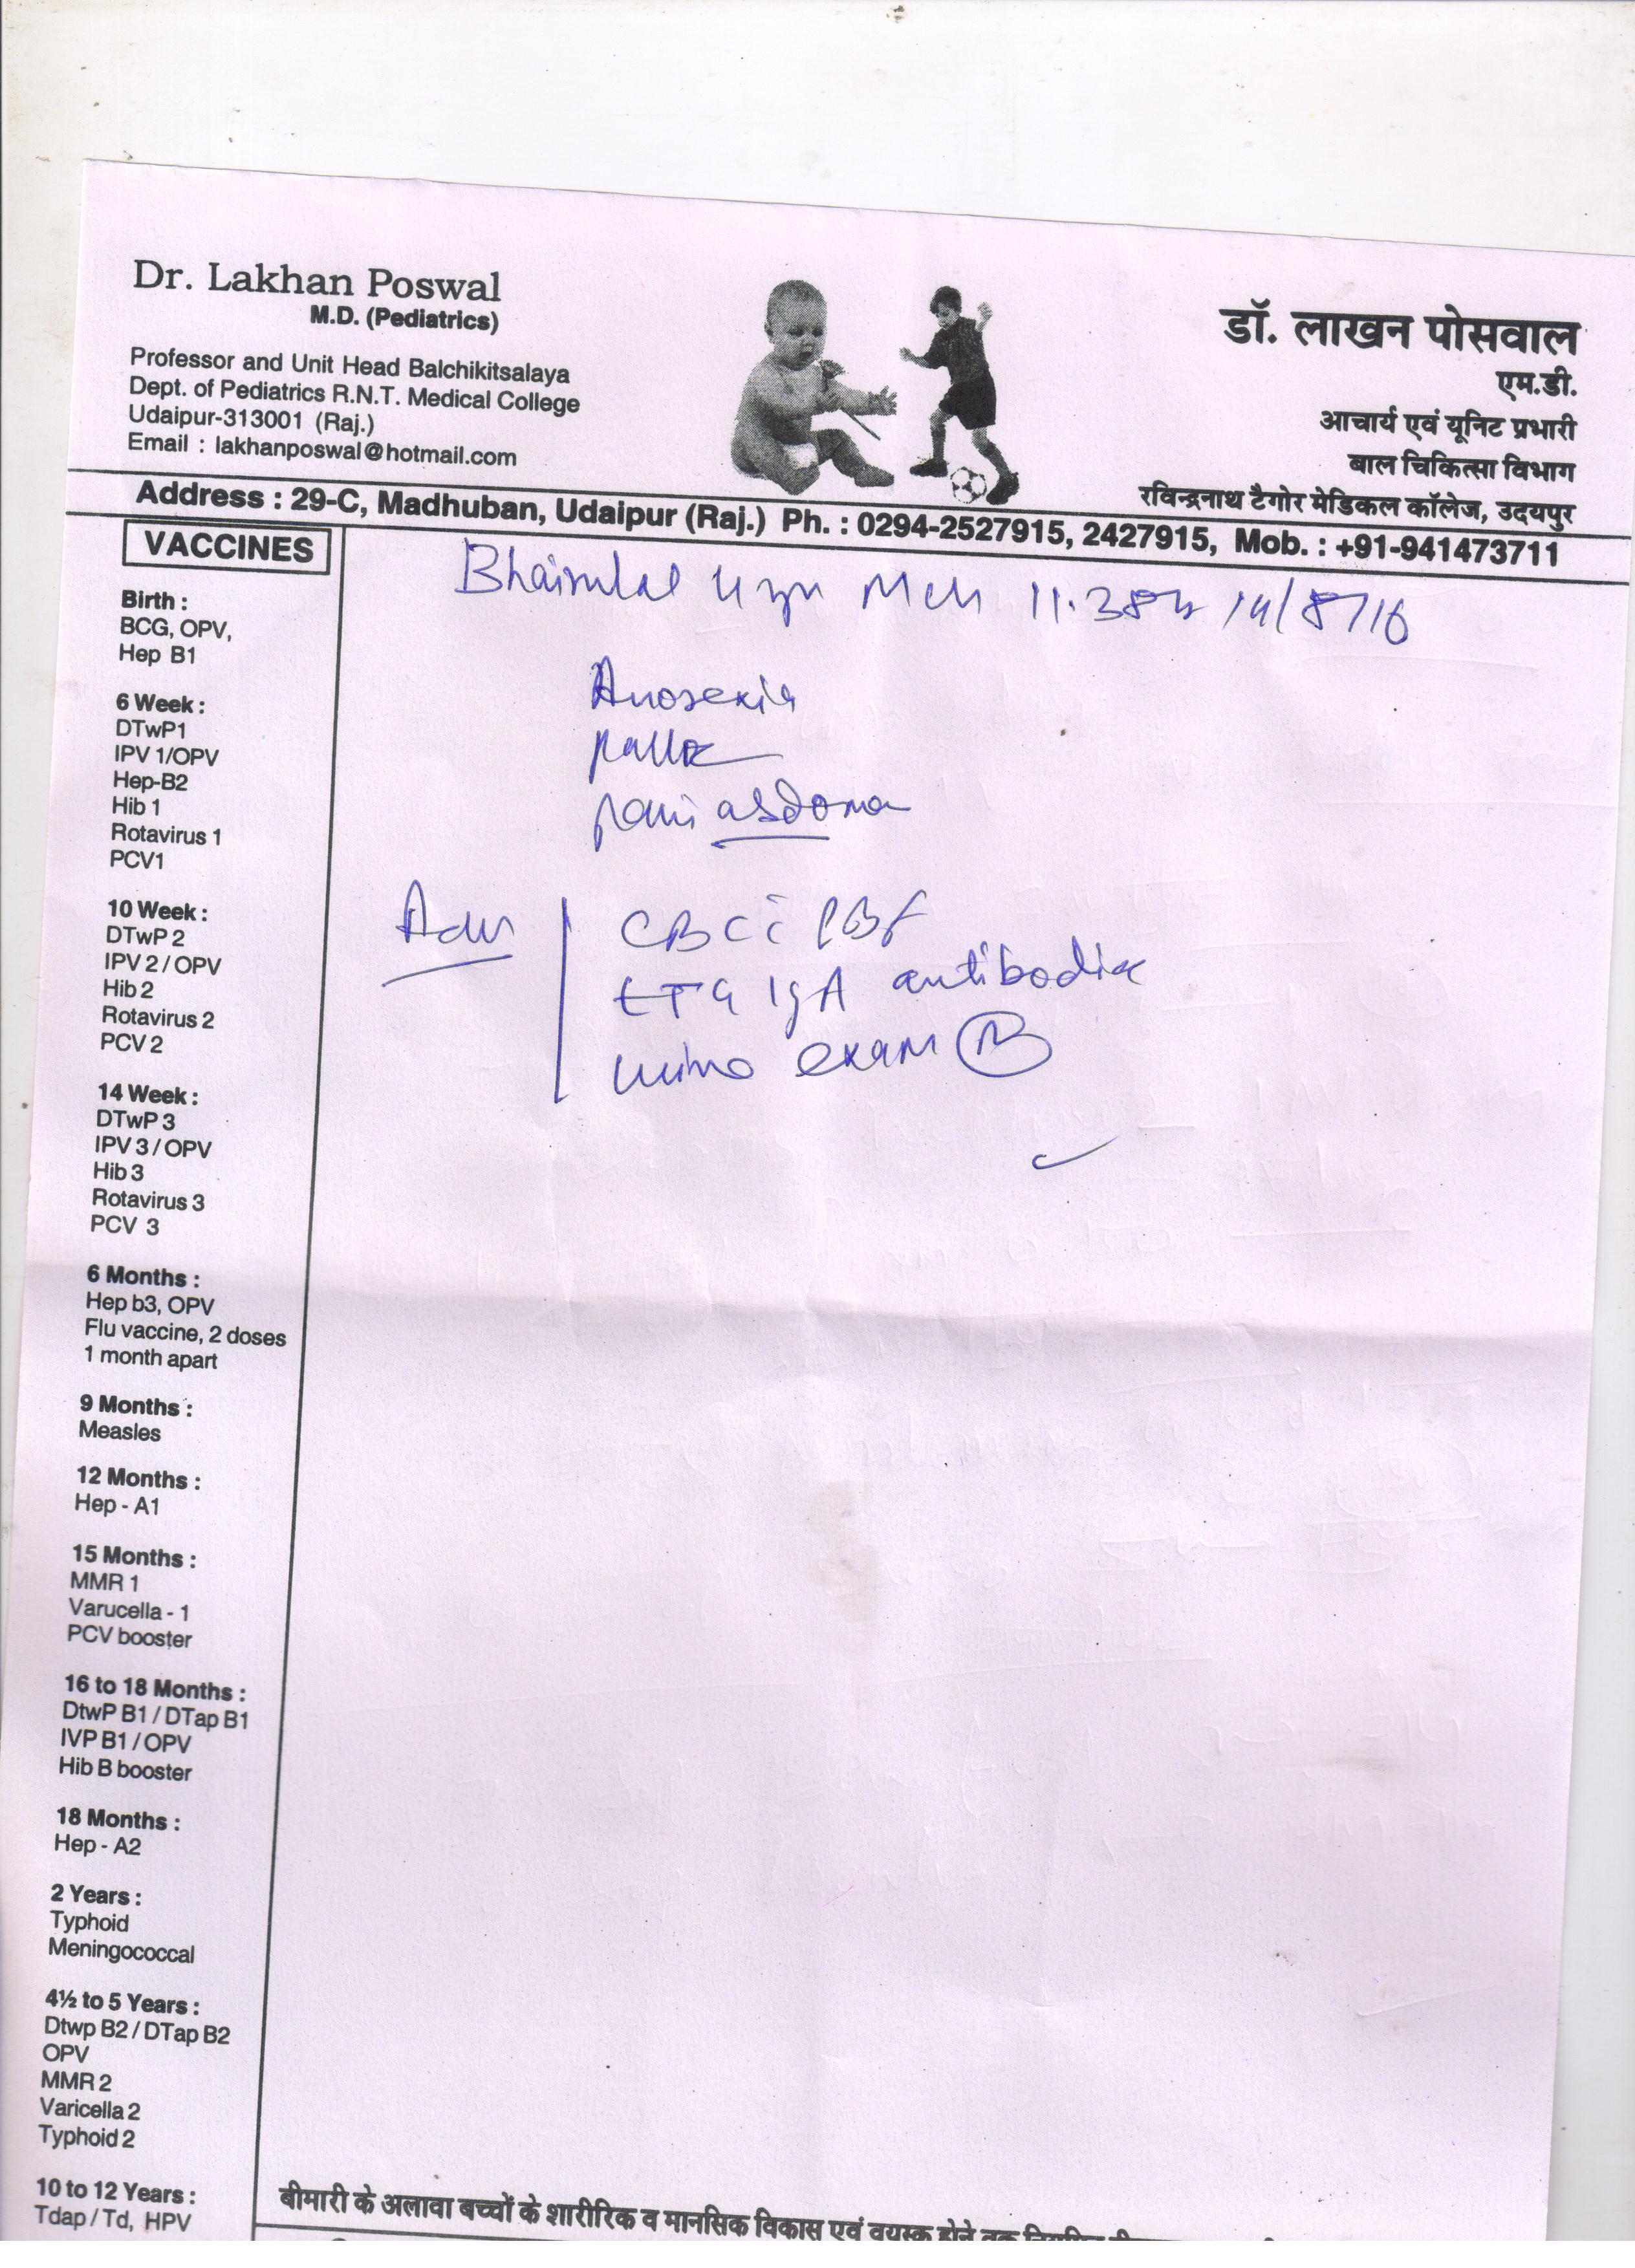 Dr. Lakhan Poswal
M.D. (Pediatrics)
Professor and Unit Head Balchikitsalaya
Dept. of Pediatrics R.N.T. Medical College
Udaipur-313001 (Raj.)
Email : lakhanposwal@hotmail.com
डॉ. लाखन पोसवाल
एम.डी.
आचार्य एवं यूनिट प्रभारी
बाल चिकित्सा विभाग
रविन्द्रनाथ टैगोर मेडिकल कॉलेज, उदयपुर
Address : 29-C, Madhuban, Udaipur (Raj.) Ph. : 0294-2527915, 2427915, Mob. : +91-941473711
VACCINES
Birth :
BCG, OPV,
Hep B1
6 Week :
DTwP1
IPV 1/OPV
Hep-B2
Hib 1
Rotavirus 1
PCV1
10 Week :
DTwP 2
IPV 2 / OPV
Hib 2
Rotavirus 2
PCV 2
14 Week :
DTwP 3
IPV 3 / OPV
Hib 3
Rotavirus 3
PCV 3
6 Months :
Hep b3, OPV
Flu vaccine, 2 doses
1 month apart
9 Months :
Measles
12 Months :
Hep - A1
15 Months :
MMR 1
Varucella - 1
PCV booster
16 to 18 Months :
DtwP B1 / DTap B1
IVP B1 / OPV
Hib B booster
18 Months :
Hep - A2
2 Years :
Typhoid
Meningococcal
4½ to 5 Years :
Dtwp B2 / DTap B2
OPV
MMR 2
Varicella 2
Typhoid 2
10 to 12 Years :
Tdap / Td, HPV
4 yr Mch 11.38 14/8/16
Anorexia
pallor
pain abdomen
Adv
CBC c̄ PBF
tTG IgA antibodies
urine exam (R)
बीमारी के अलावा बच्चों के शारीरिक व मानसिक विकास एवं वयस्क होने तक